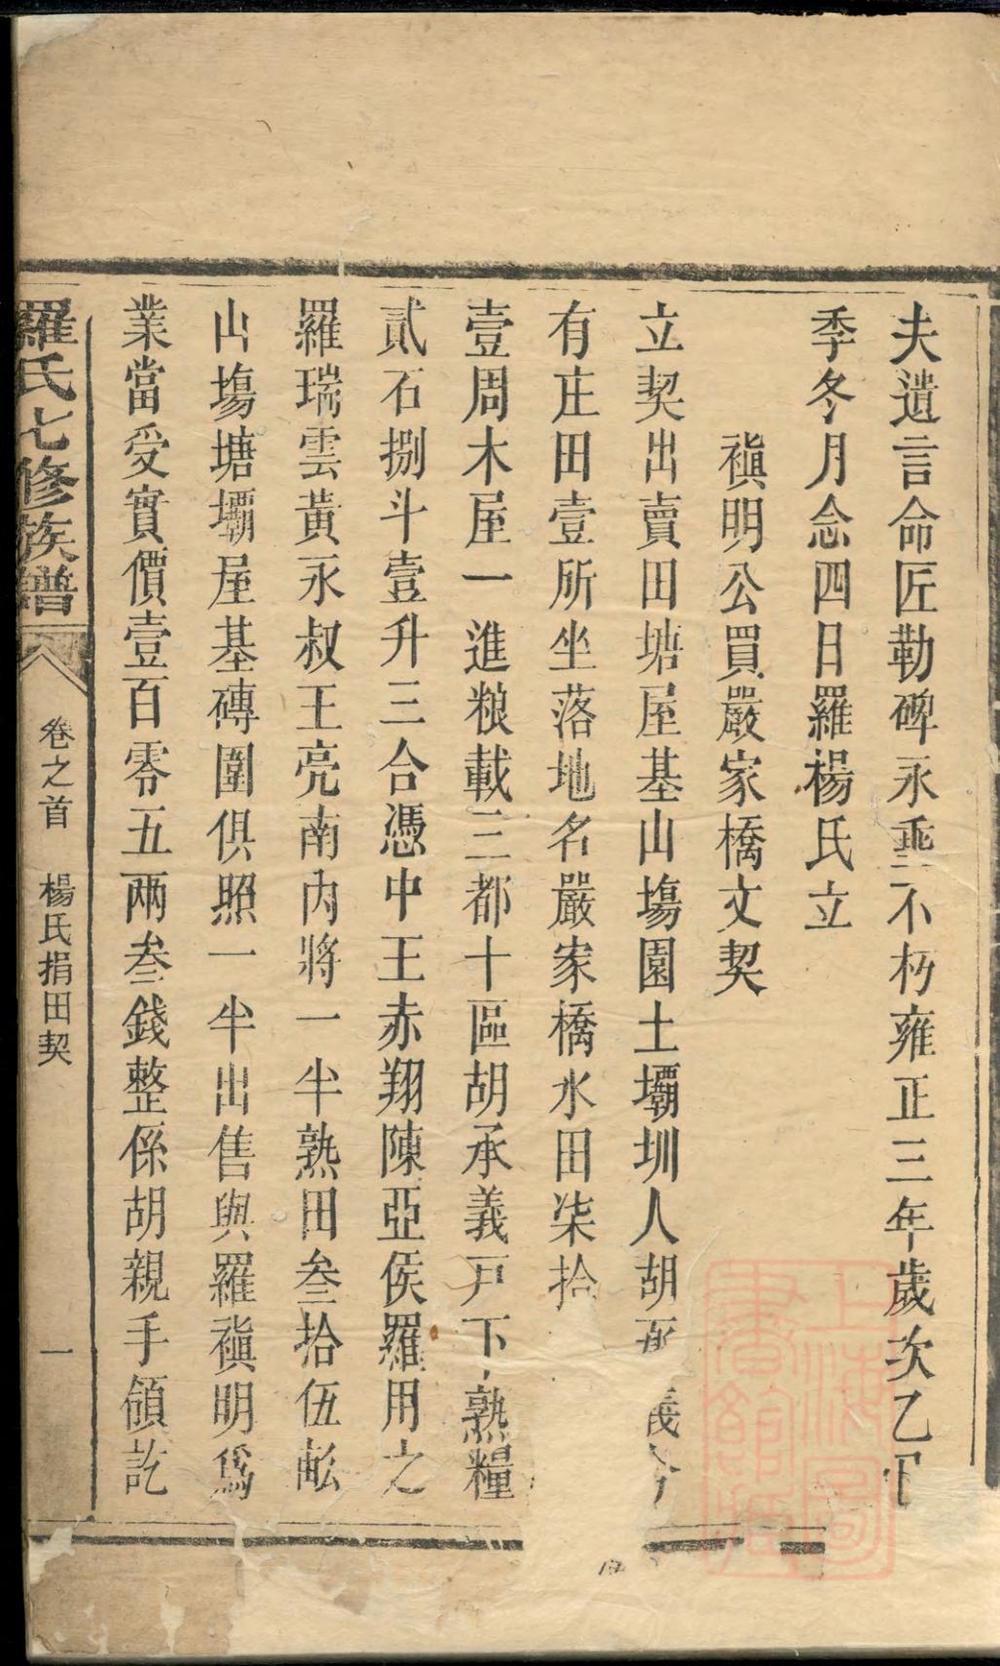 夫遺言命匠勒碑永垂不朽雍正三年歲次乙
季冬月念四日羅楊氏立
禛明公買嚴家橋文契
立契出賣田塘屋基山塲園土壩圳人胡承義今
有庄田壹所坐落地名嚴家橋水田柒拾
壹周木屋一進粮載三都十區胡承義戸下熟糧
貳石捌斗壹升三合憑中王赤翔陳亞侯羅用之
羅瑞雲黃永叔王亮南內將一半熟田叁拾伍畝
山塲塘壩屋基磚圍俱照一半出售與羅禛明爲
業當受實價壹百零五兩叁錢整係胡親手領訖
羅氏七修族譜
卷之首 楊氏捐田契 一
上海圖書館藏